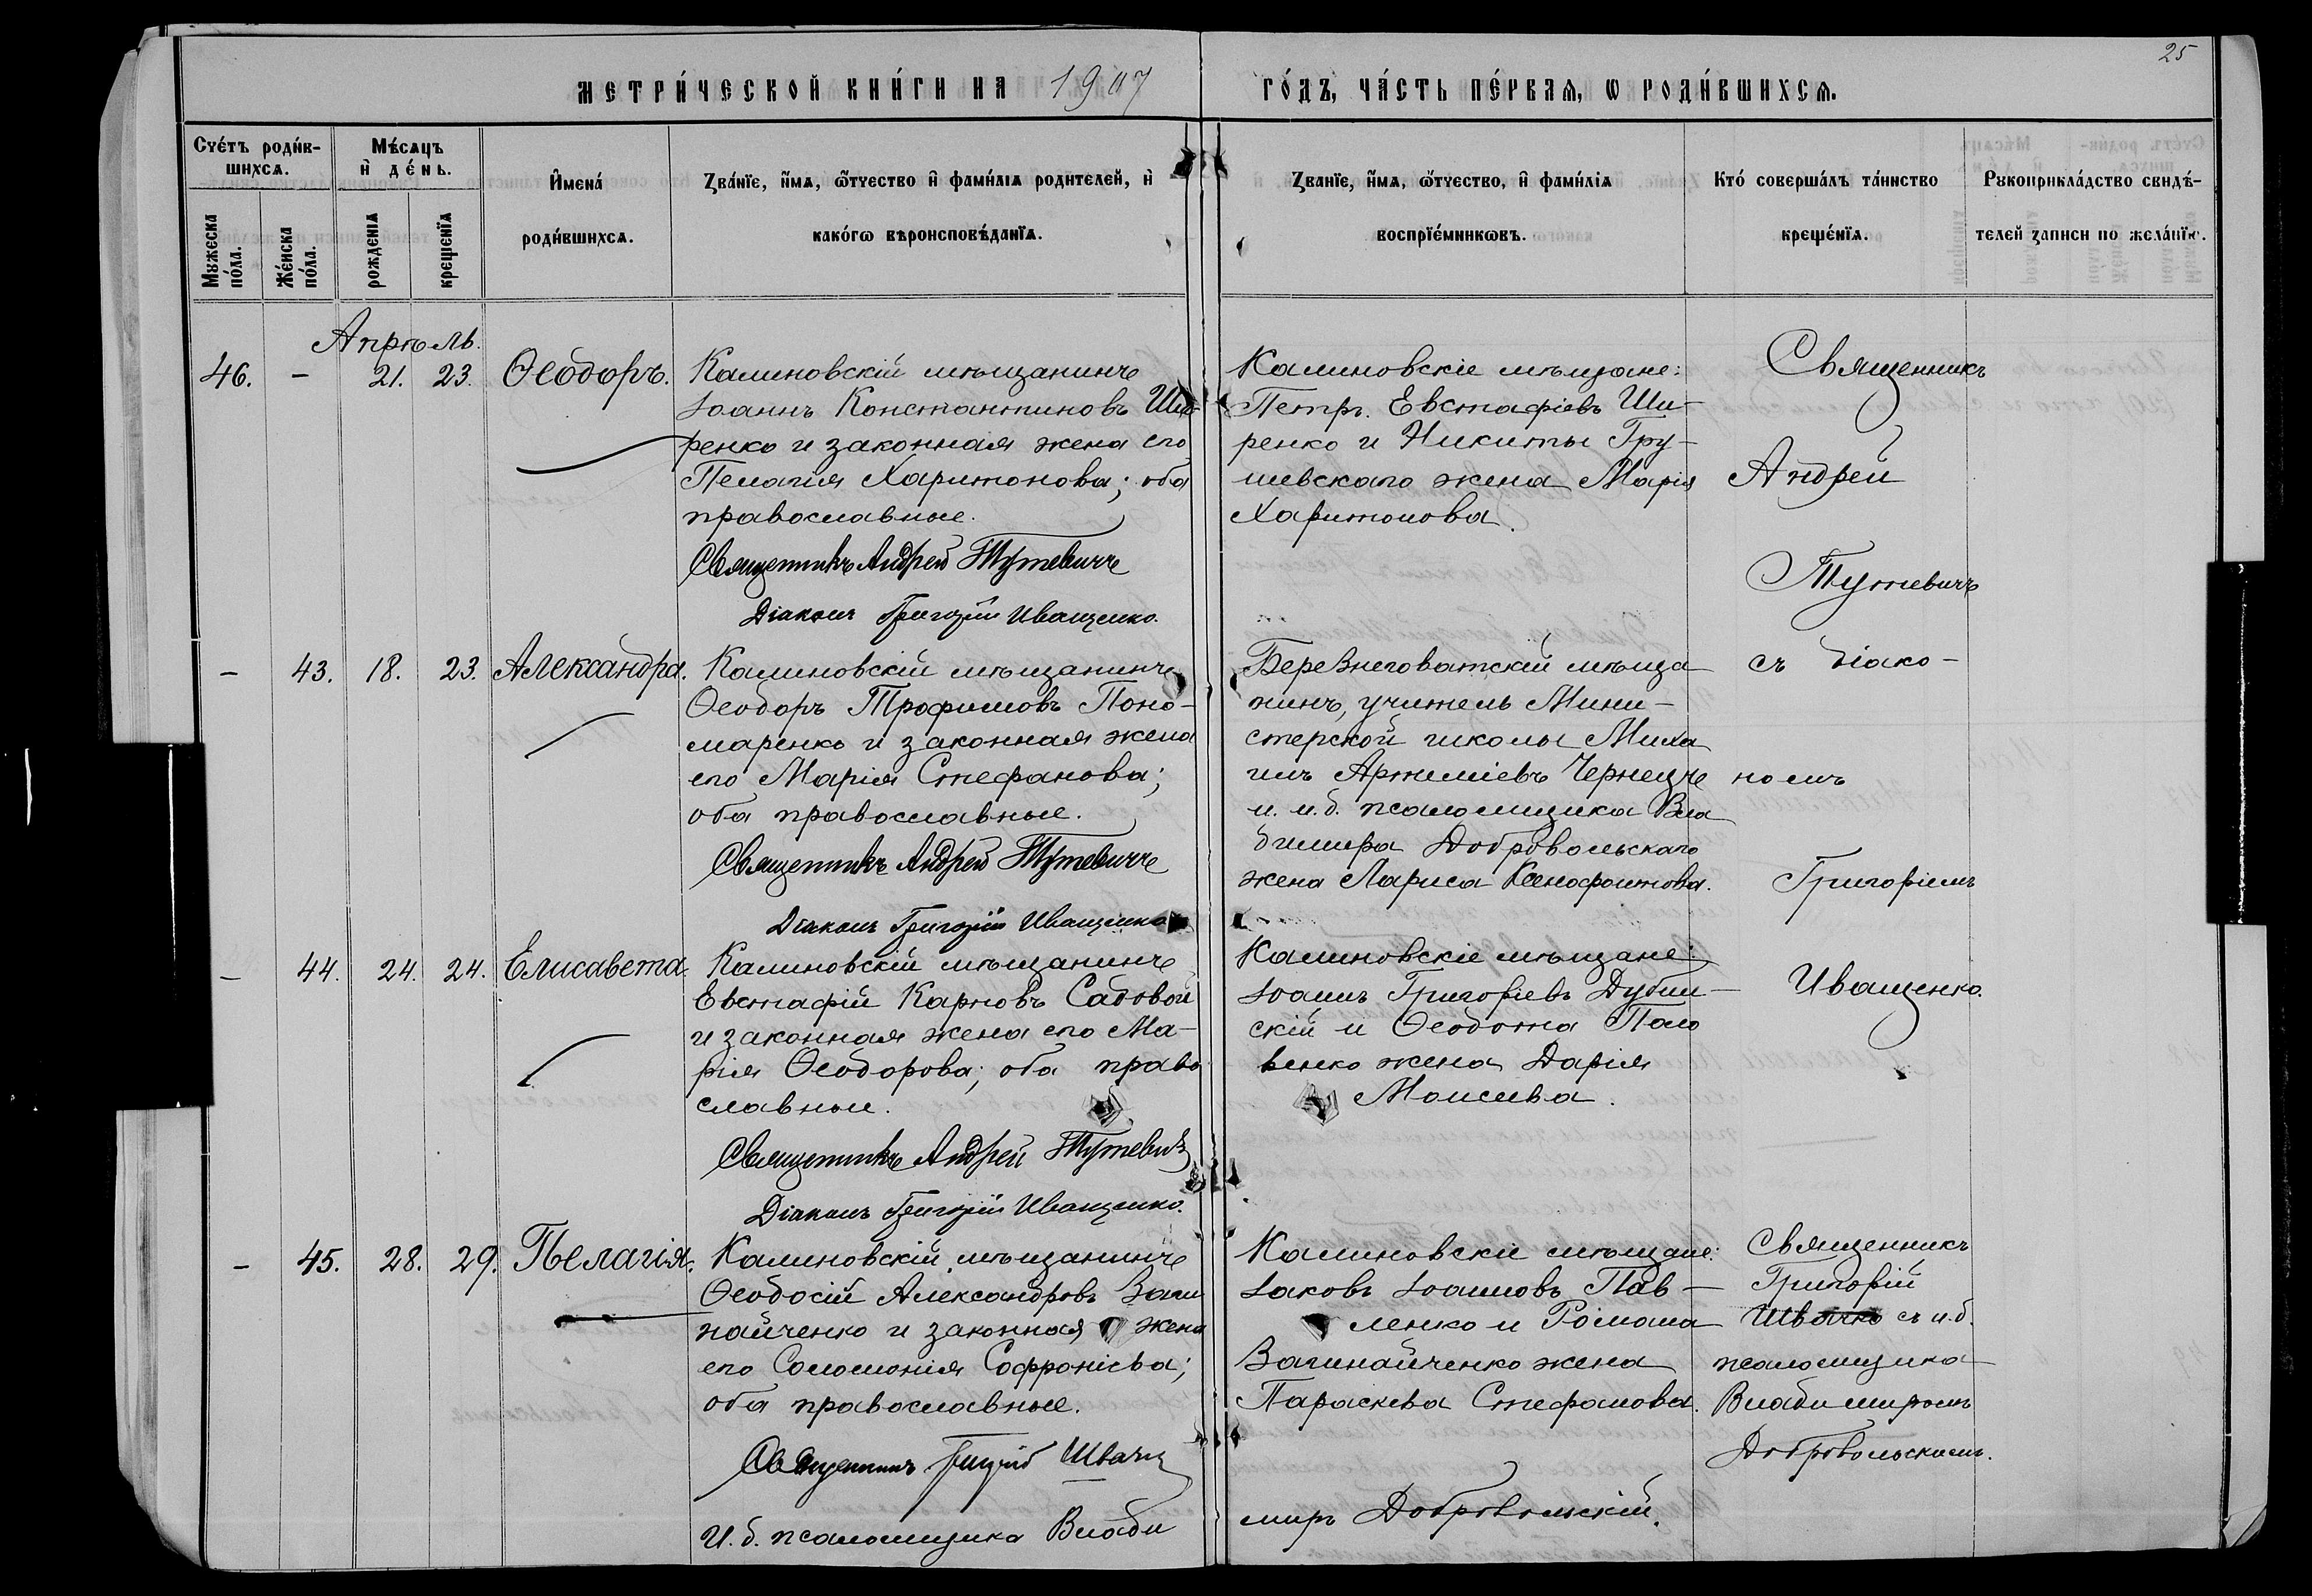 25
МЕТРИ́ЧЕСКОЙ КНИ́ГИ НА 1907 ГО́ДЪ, ЧА́СТЬ ПЕ́РВАѦ, Ѡ РОДИ́ВШИХСѦ.
Сче́тъ роди́в-
шихсѧ.
Мѣ́сѧцъ
и҆ де́нь.
Мꙋжеска
по́ла.
Же́нска
по́ла.
рожденїѧ
крещенїѧ
И҆мена́
роди́вшихсѧ.
Зва́нїе, и҆́мѧ, ѻ҆́тчество и҆ фами́лїѧ родителей, и҆
како́гѡ вѣроисповѣ́данїѧ.
Званїе, и҆́мѧ, ѻ҆́тчество, и҆ фами́лїѧ
воспрїе́мникѡвъ.
Кто́ соверша́лъ та́инство
креще́нїѧ.
Рꙋкоприкла́дство свидѣ́-
телей записи по жела́нїю.
Апрѣль.
46. – 21. 23. Ѳеодоръ.
Калиновскій мѣщанинъ
Іоаннъ Константиновъ Ши-
ренко и законная жена его
Пелагія Харитонова; оба
православные.
Священникъ Андрей Тутевичъ
Діаконъ Григорій Иващенко.
Калиновскіе мѣщане:
Петръ Евстафіевъ Ши-
ренко и Никиты Гру-
шевскаго жена Марія
Харитонова.
Священникъ
Андрей
Тутевичъ
съ діако-
номъ
Григоріемъ
Иващенко.
– 43. 18. 23. Александра.
Калиновскій мѣщанинъ
Ѳеодоръ Трофимовъ Поно-
маренко и законная жена
его Марія Стефанова;
оба православные.
Священникъ Андрей Тутевичъ
Діаконъ Григорій Иващенко
Березнеговатскій мѣща
нинъ, учитель Мини-
стерской школы Миха
илъ Артеміевъ Чернецъ
и и.д. псаломщика Вла
диміра Добровольскаго
жена Лариса Ксенофонтова.
– 44. 24. 24. Елисавета.
Калиновскій мѣщанинъ
Евстафій Карповъ Садовой
и законная жена его Ма-
рія Ѳеодорова; оба право
славные.
Священникъ Андрей Тутевичъ
Діаконъ Григорій Иващенко.
Калиновскіе мѣщане:
Іоаннъ Григоріевъ Дубин-
скій и Ѳеодота Поло
венко жена Дарія
Моисеева.
– 45. 28. 29. Пелагія.
Калиновскій мѣщанинъ
Ѳеодосій Александровъ Ваги
найченко и законная жена
его Соломонія Софроніева;
оба православные.
Священникъ Григорій Швачко
И.д. псаломщика Влади
миръ Добровольскій.
Калиновскіе мѣщане:
Іаковъ Іоанновъ Пав-
ленко и Романа
Вагинайченко жена
Параскева Стефанова.
Священникъ
Григорій
Швачко съ и.д.
псаломщика
Владиміромъ
Добровольскимъ.